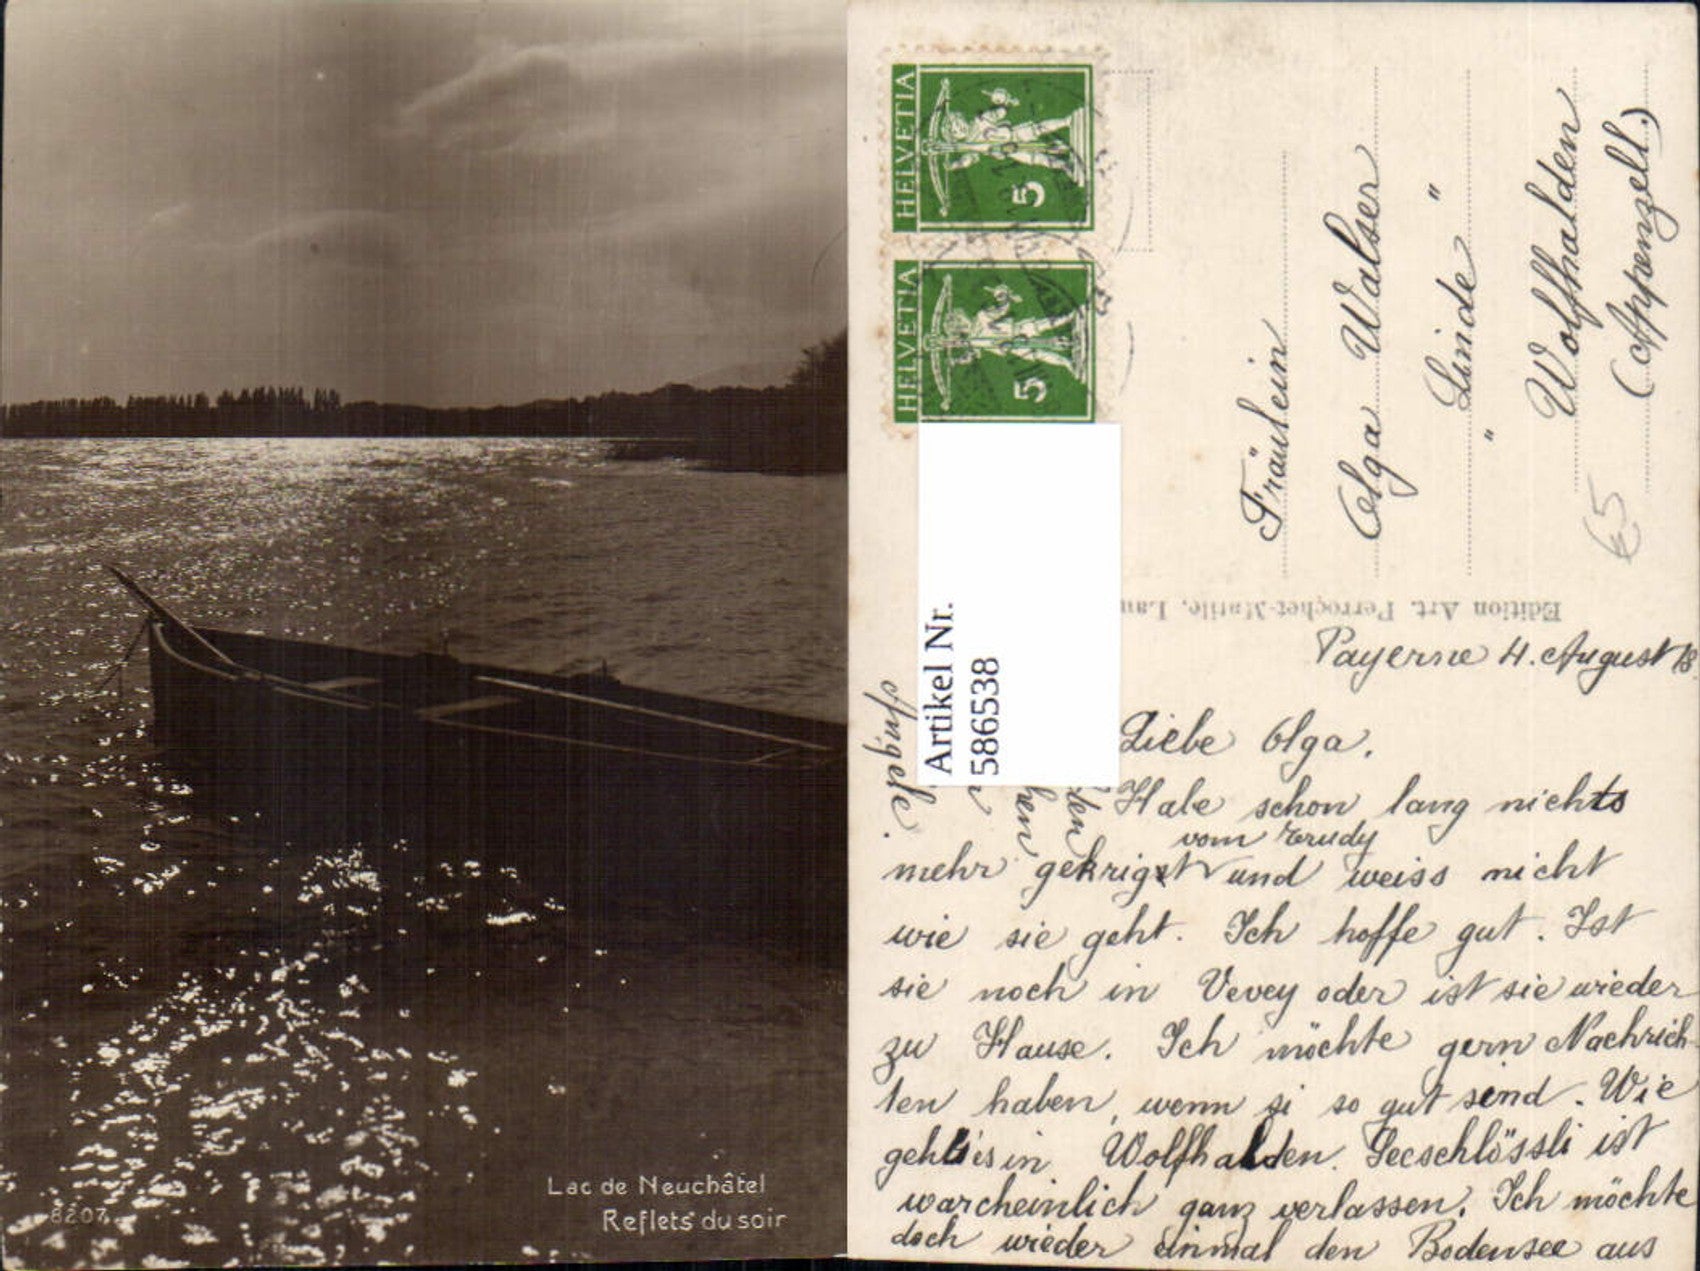 Lac de Neuchâtel
Reflets du soir
8207
HELVETIA
5
HELVETIA
5
Fräulein
Olga Walser
"Linde"
Wolfhalden
(Appenzell.)
€5
Edition Art. Perrochet-Matile, Lau
Artikel Nr.
586538
Payerne 4. August 18.
Liebe Olga.
Habe schon lang nichts
vom Trudy
mehr gekrigt und weiss nicht
wie sie geht. Ich hoffe gut. Ist
sie noch in Vevey oder ist sie wieder
zu Hause. Ich möchte gern Nachrich-
ten haben, wenn si so gut sind. Wie
geht's in Wolfhalden. Seeschlössli ist
warcheinlich ganz verlassen. Ich möchte
doch wieder einmal den Bodensee aus
Angele.